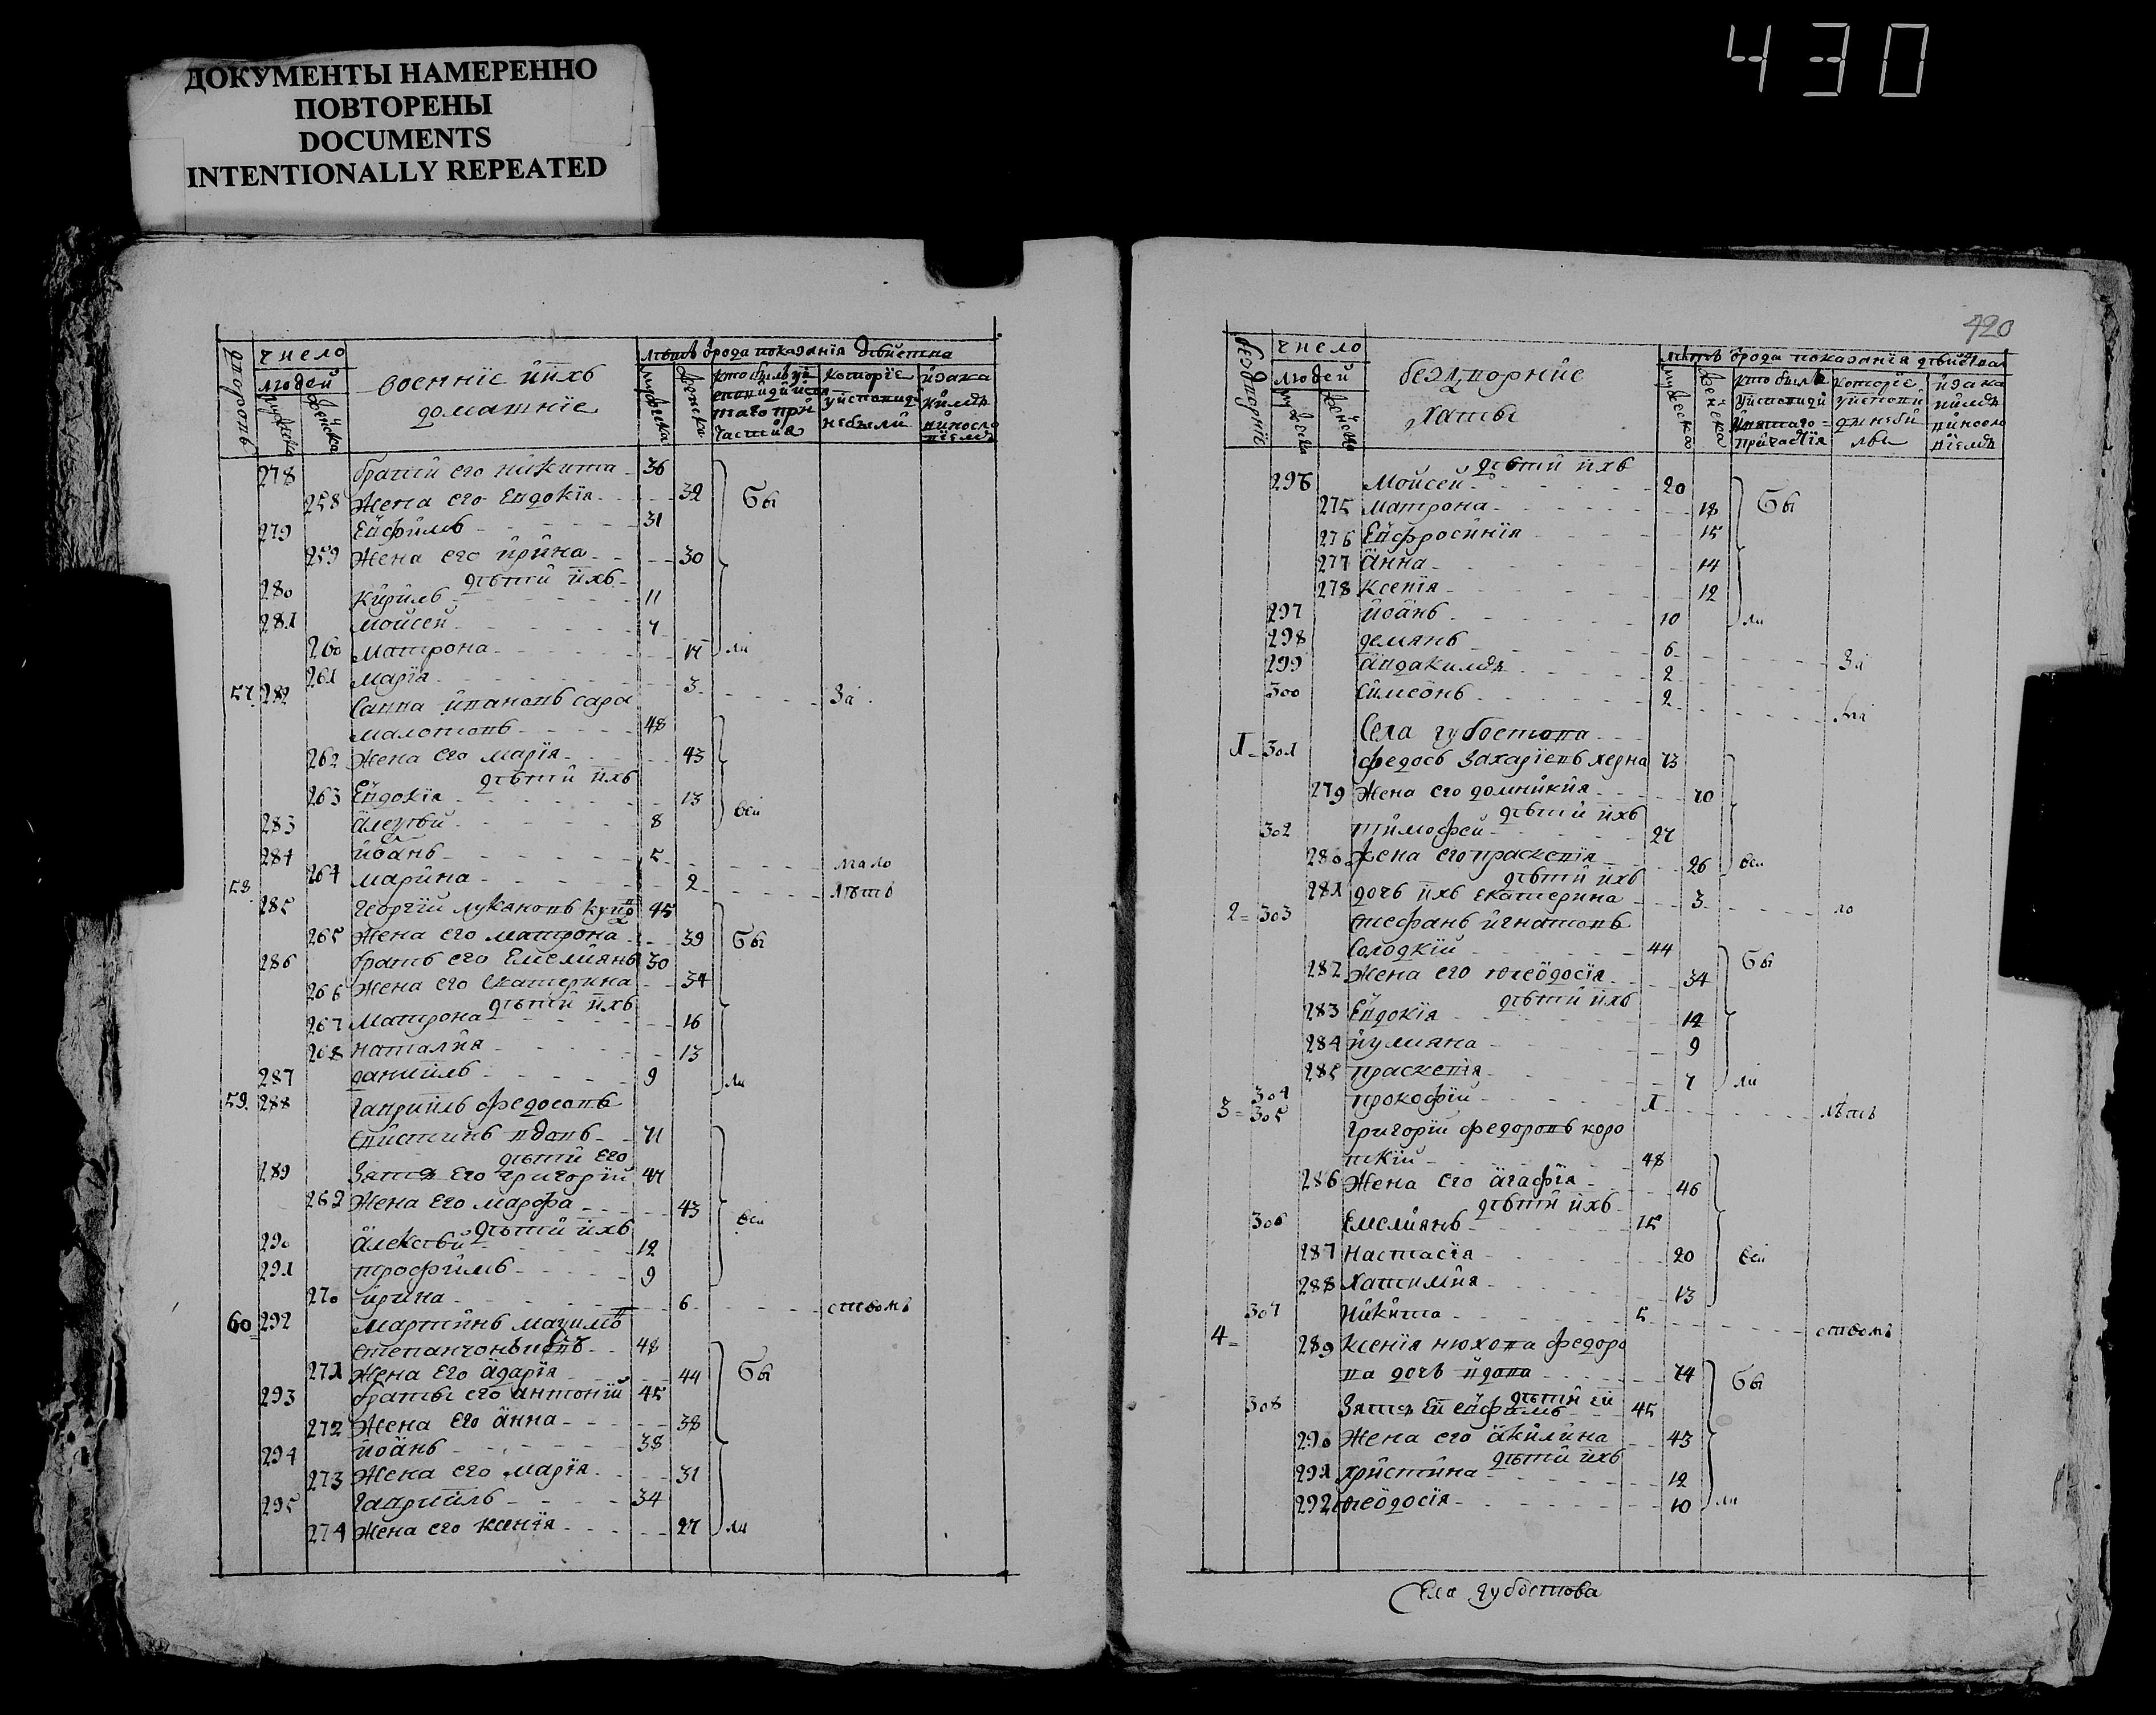 430
ДОКУМЕНТЫ НАМЕРЕННО
ПОВТОРЕНЫ
DOCUMENTS
INTENTIONALLY REPEATED
число
людей
военніе и ихъ
домашніе
лѣтъ
278 братъ его никита 36
258 Жена его Евдокія 32 бы
279 Евфимъ 31
259 Жена его ирина 30
дѣти ихъ
280 Кирилъ 11
281 мойсей 7
260 Матрона 14 ли
261 марія 3 за
57 282 Савва ивановъ сара
маломовъ 48
262 Жена его марія 43
дѣти ихъ
263 Евдокія 13 вси
283 алеѯѣй 8
284 иоанъ 5 мало
264 марина 2 лѣтъ
58 285 Георгій лукяновъ 45
265 Жена его матрона 39 бы
286 братъ его Емелиянъ 30
266 Жена его Екатерина 34
дѣти ихъ
267 Матрона 16
268 наталия 13
287 даниилъ 9 ли
59 288 Гавриилъ федосовъ
вдовъ 71
дѣти его
289 Зять Его Григорій 47
269 Жена его марфа 43 вси
дѣти ихъ
290 Алексѣй 12
291 трофимъ 9
270 ирина 6 ством
60 292 Мартинъ
48
271 Жена Его адарія 44 бы
293 братъ его антоній 45
272 Жена Его анна 38
294 иоанъ 38
273 Жена его марія 31
295 гавриилъ 34
274 Жена его ксенія 27 ли
420
число
людей
бездворніе
хаты
дѣти ихъ
296 Мойсей 20
275 матрона 18 бы
276 Евфросинія 15
277 анна 14
278 ксенія 12
297 иоанъ 10 ли
298 демянъ 6 за
299 авдакимъ 2
300 Симеонъ 2
Села губостова
1 301 федосъ Захаріевъ 73
279 Жена его домникия 70
дѣти ихъ
302 тимофей 27
280 Жена его прасковія 26 вси
дѣти ихъ
281 дочъ ихъ екатерина 3 ло
2 303 стефанъ игнатовъ
Солодкій 44
282 Жена его феодосія 34 бы
дѣти ихъ
283 Евдокія 12
284 иулияна 9
285 праскевія 7 ли
304 прокофій 1 лѣтъ
3 305 григорій федоровъ коро
ткій 48
286 Жена его агафія 46
дѣти ихъ
306 Емелиянъ 15
287 Настасія 20 вси
288 13
307 Никита 5 ством
4 289 Ксенія нюхова федоро
ва дочъ вдова 74 бы
дѣти ей
308 Зять Ей евфимъ 45
290 Жена его акилина 43
дѣти ихъ
291 христина 12
292 феодосія 10 ли
Села губостова